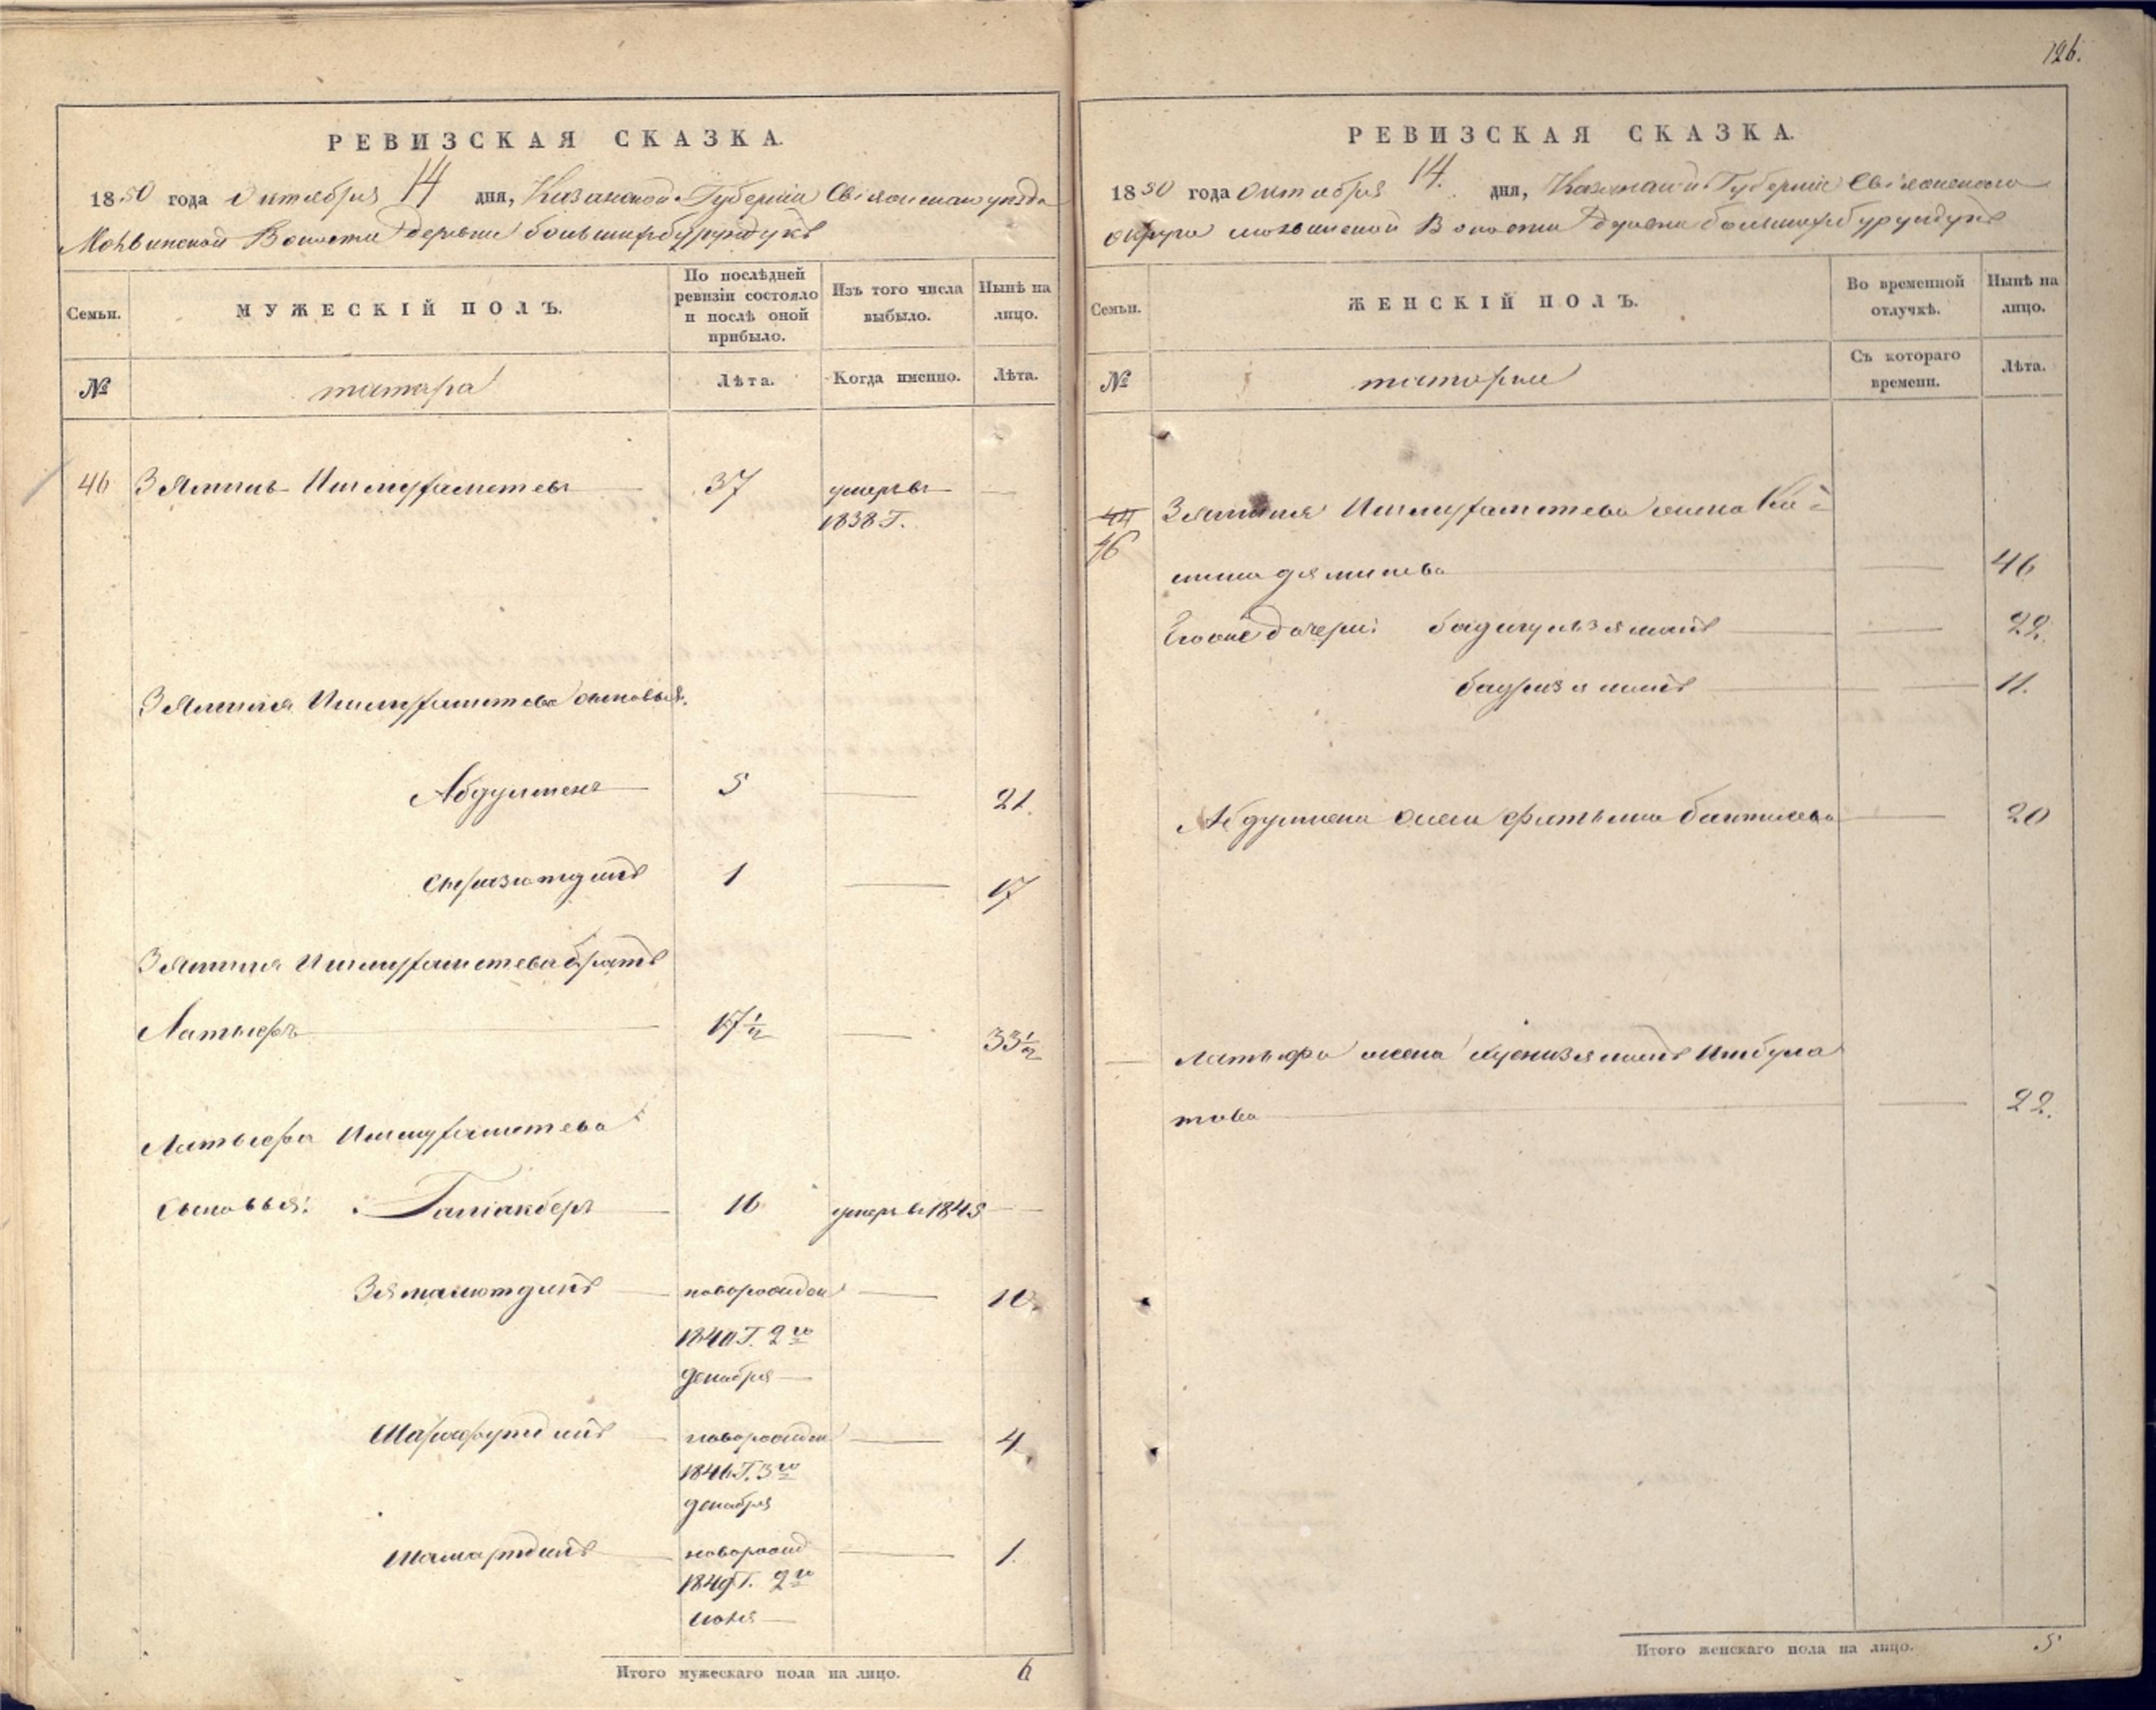 126.
РЕВИЗСКАЯ СКАЗКА.
1850 года Октября 14 дня, Казанской Губерніи Свіяжскаго уезда
Волости деревни большихъ бурундукъ
Семьи.
МУЖЕСКІЙ ПОЛЪ.
По послѣдней ревизіи состояло и послѣ оной прибыло.
Изъ того числа выбыло.
Нынѣ на лицо.
№
татара
Лѣта.
Когда именно.
Лѣта.
46 Зяминъ Ишмухаметевъ 37 умеръ въ —
1838 Г.
Зяминя Ишмухаметева сыновья.
Абдулменъ 5 — 21
1 — 17
Зяминя Ишмухаметева братъ
Латыфъ 17½ — 33½
Латыфа Ишмухаметева
сыновья: Галіакберъ 16 умеръ въ 1845 —
Зямалютдинъ новорожден — 10.
1840 Г. 2го
декабря
Шарафутдинъ новорожден — 4
1846 Г. 3го
декабря
новорожд — 1.
1849 Г. 2го
июня
Итого мужескаго пола на лицо. 6
РЕВИЗСКАЯ СКАЗКА.
1850 года Октября 14. дня, Казанской Губерніи Свіяжскаго
округа Волости деревни большихъ бурундукъ
Семьи.
ЖЕНСКІЙ ПОЛЪ.
Во временной отлучкѣ.
Нынѣ на лицо.
№
татарки
Съ котораго времени.
Лѣта.
44 Зяминя Ишмухаметева жена
46
— 46
Его дочери: бадигульзяманъ — 22.
— 11.
Абдулмена жена фатыма — 20
Латыфа жена Хуснизяманъ Ишбула
това — 22.
Итого женскаго пола на лицо. 5